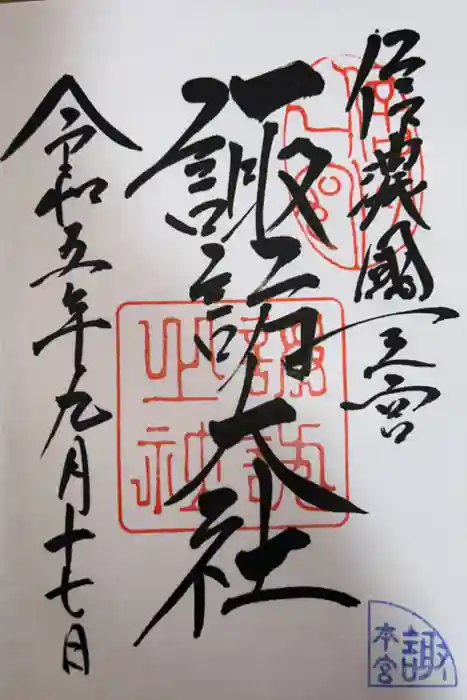 信濃國一之宮
諏訪大社
令和五年九月十七日
諏訪
神之
諏
本宮